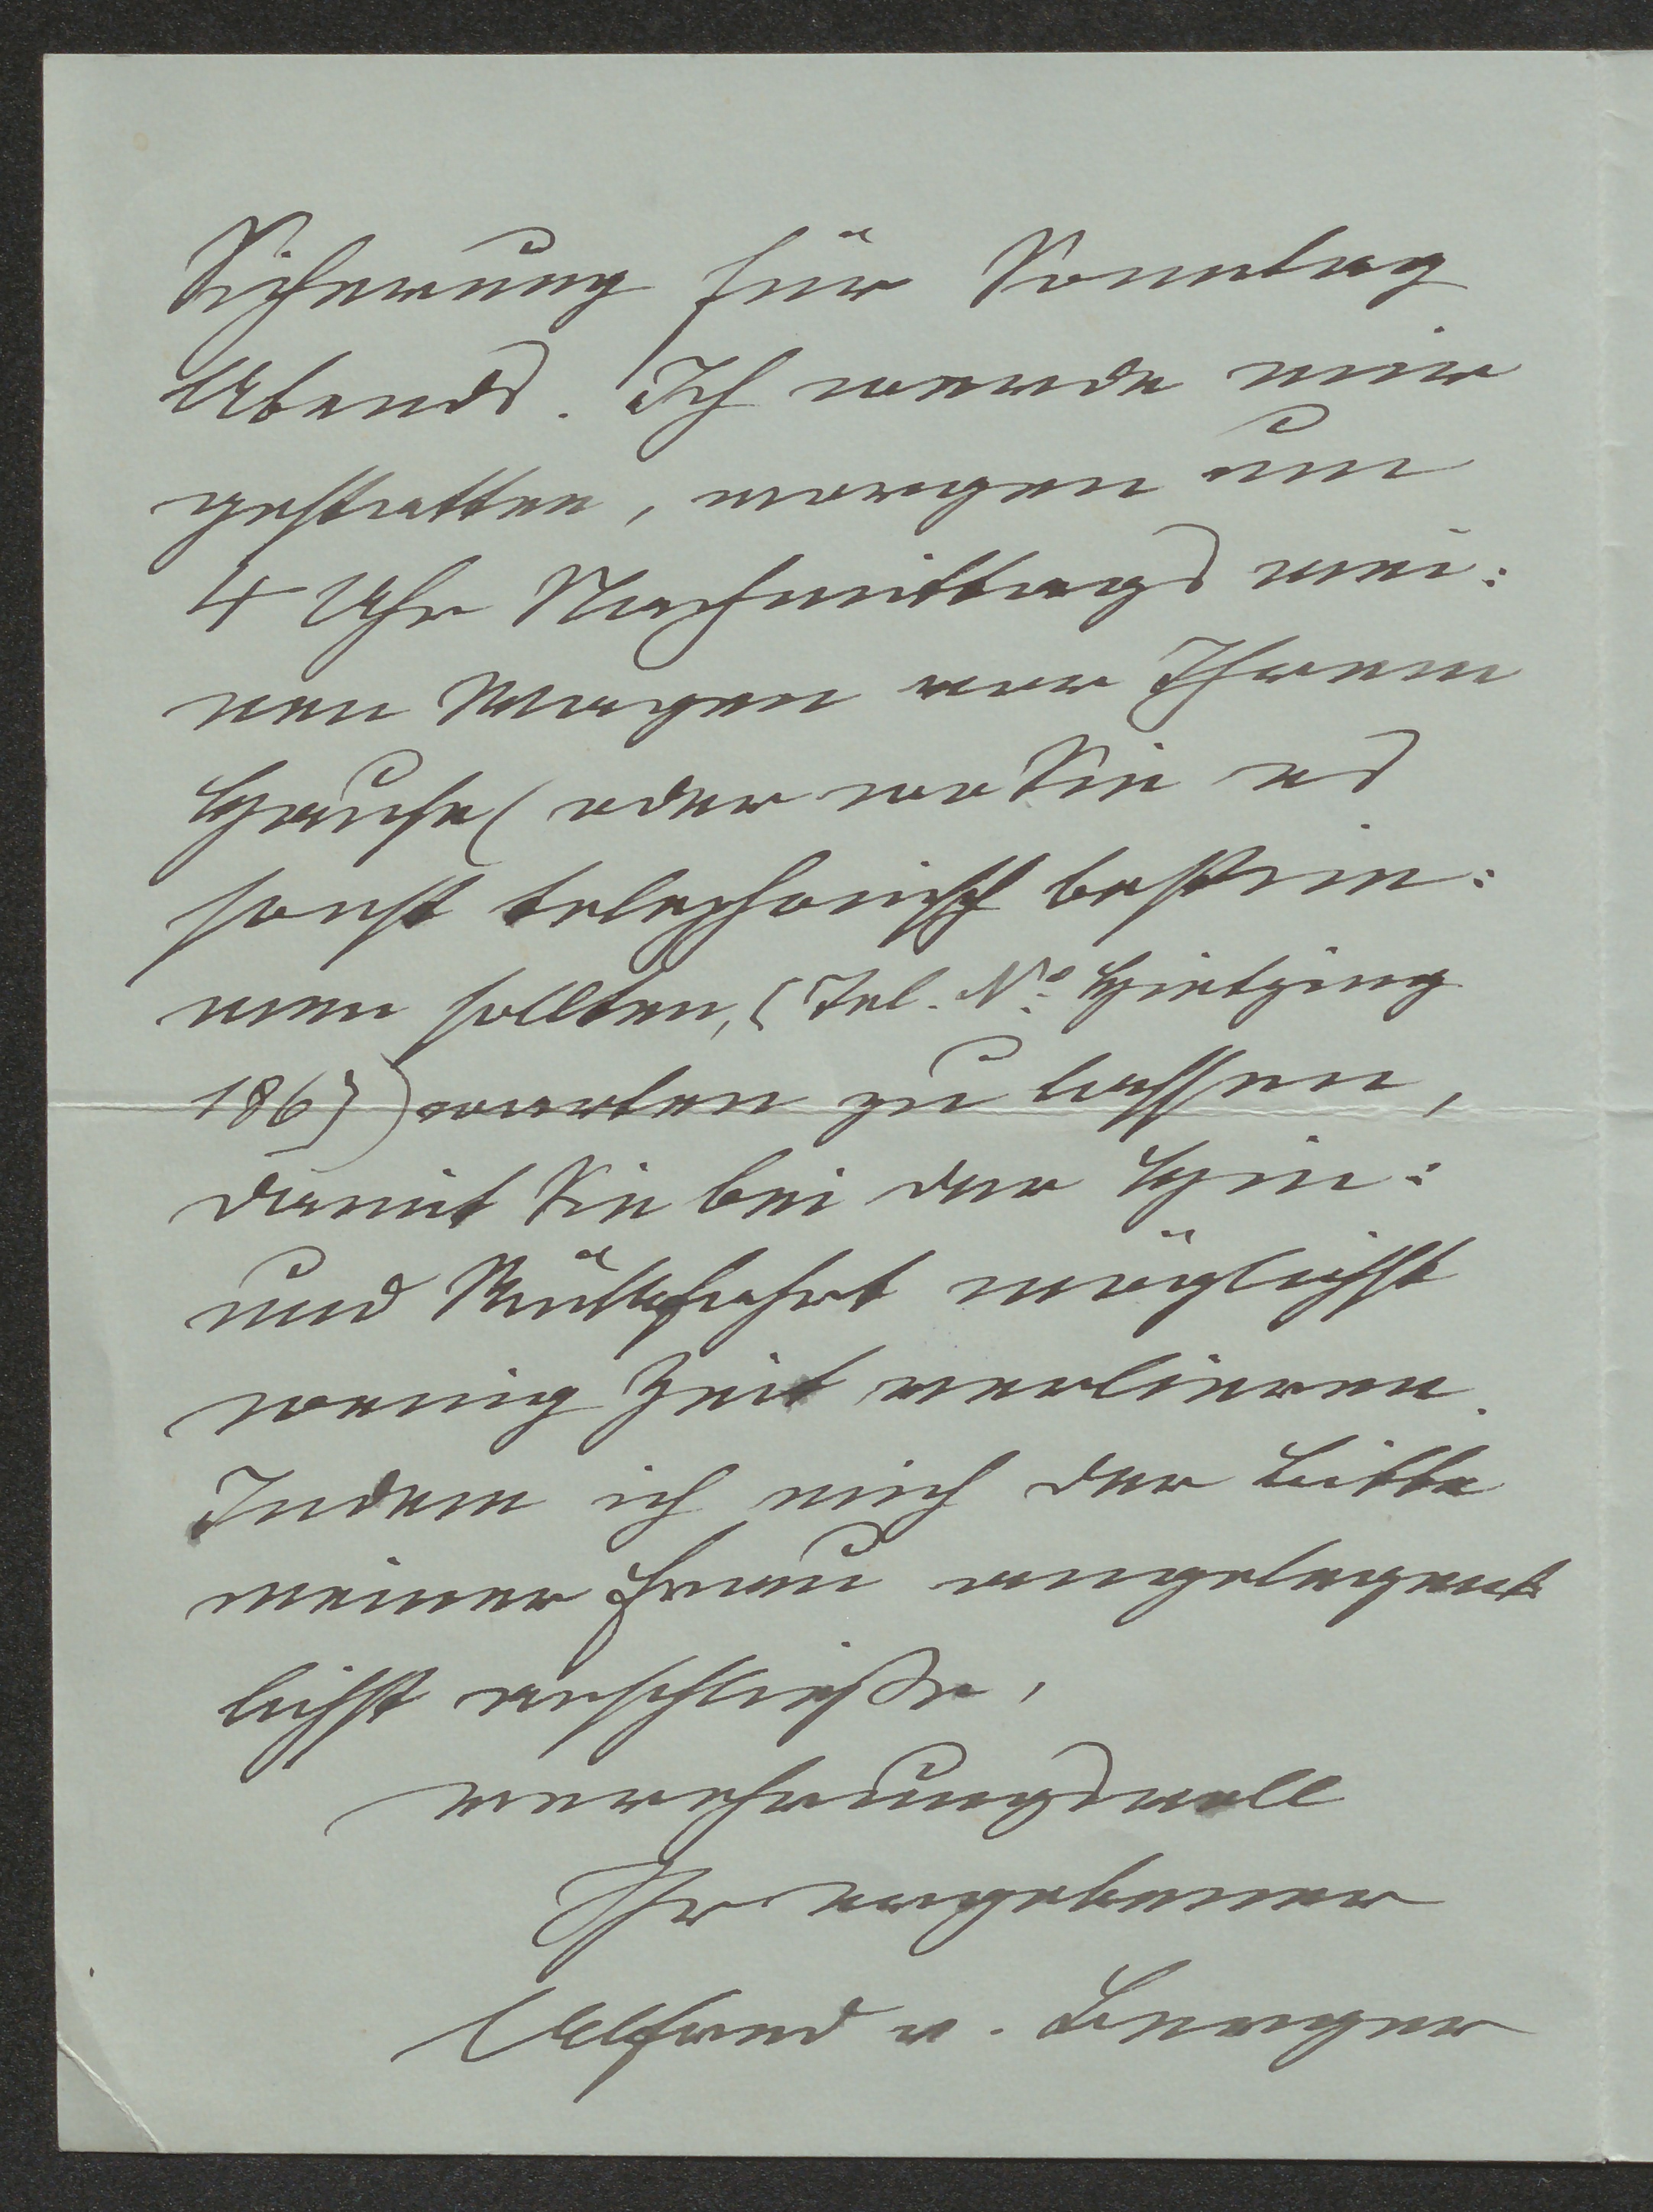 Sicherung für Sonntag
Abends. Ich werde mir
gestatten, morgen um
4 Uhr Nachmittags mei:
nen Wagen vor Ihrem
Hause (oder wo Sie es
sonst telephonisch bestim:
men sollten, [Tel. No: Hietzing
186]) warten zu lassen,
damit Sie bei der Hin:
und Rückfahrt möglichst
wenig Zeit verlieren.
Indem ich mich der Bitte
meiner Frau angelegent
lichst anschließe,
verehrungsvoll
Ihr ergebener
Alfred v. Berger